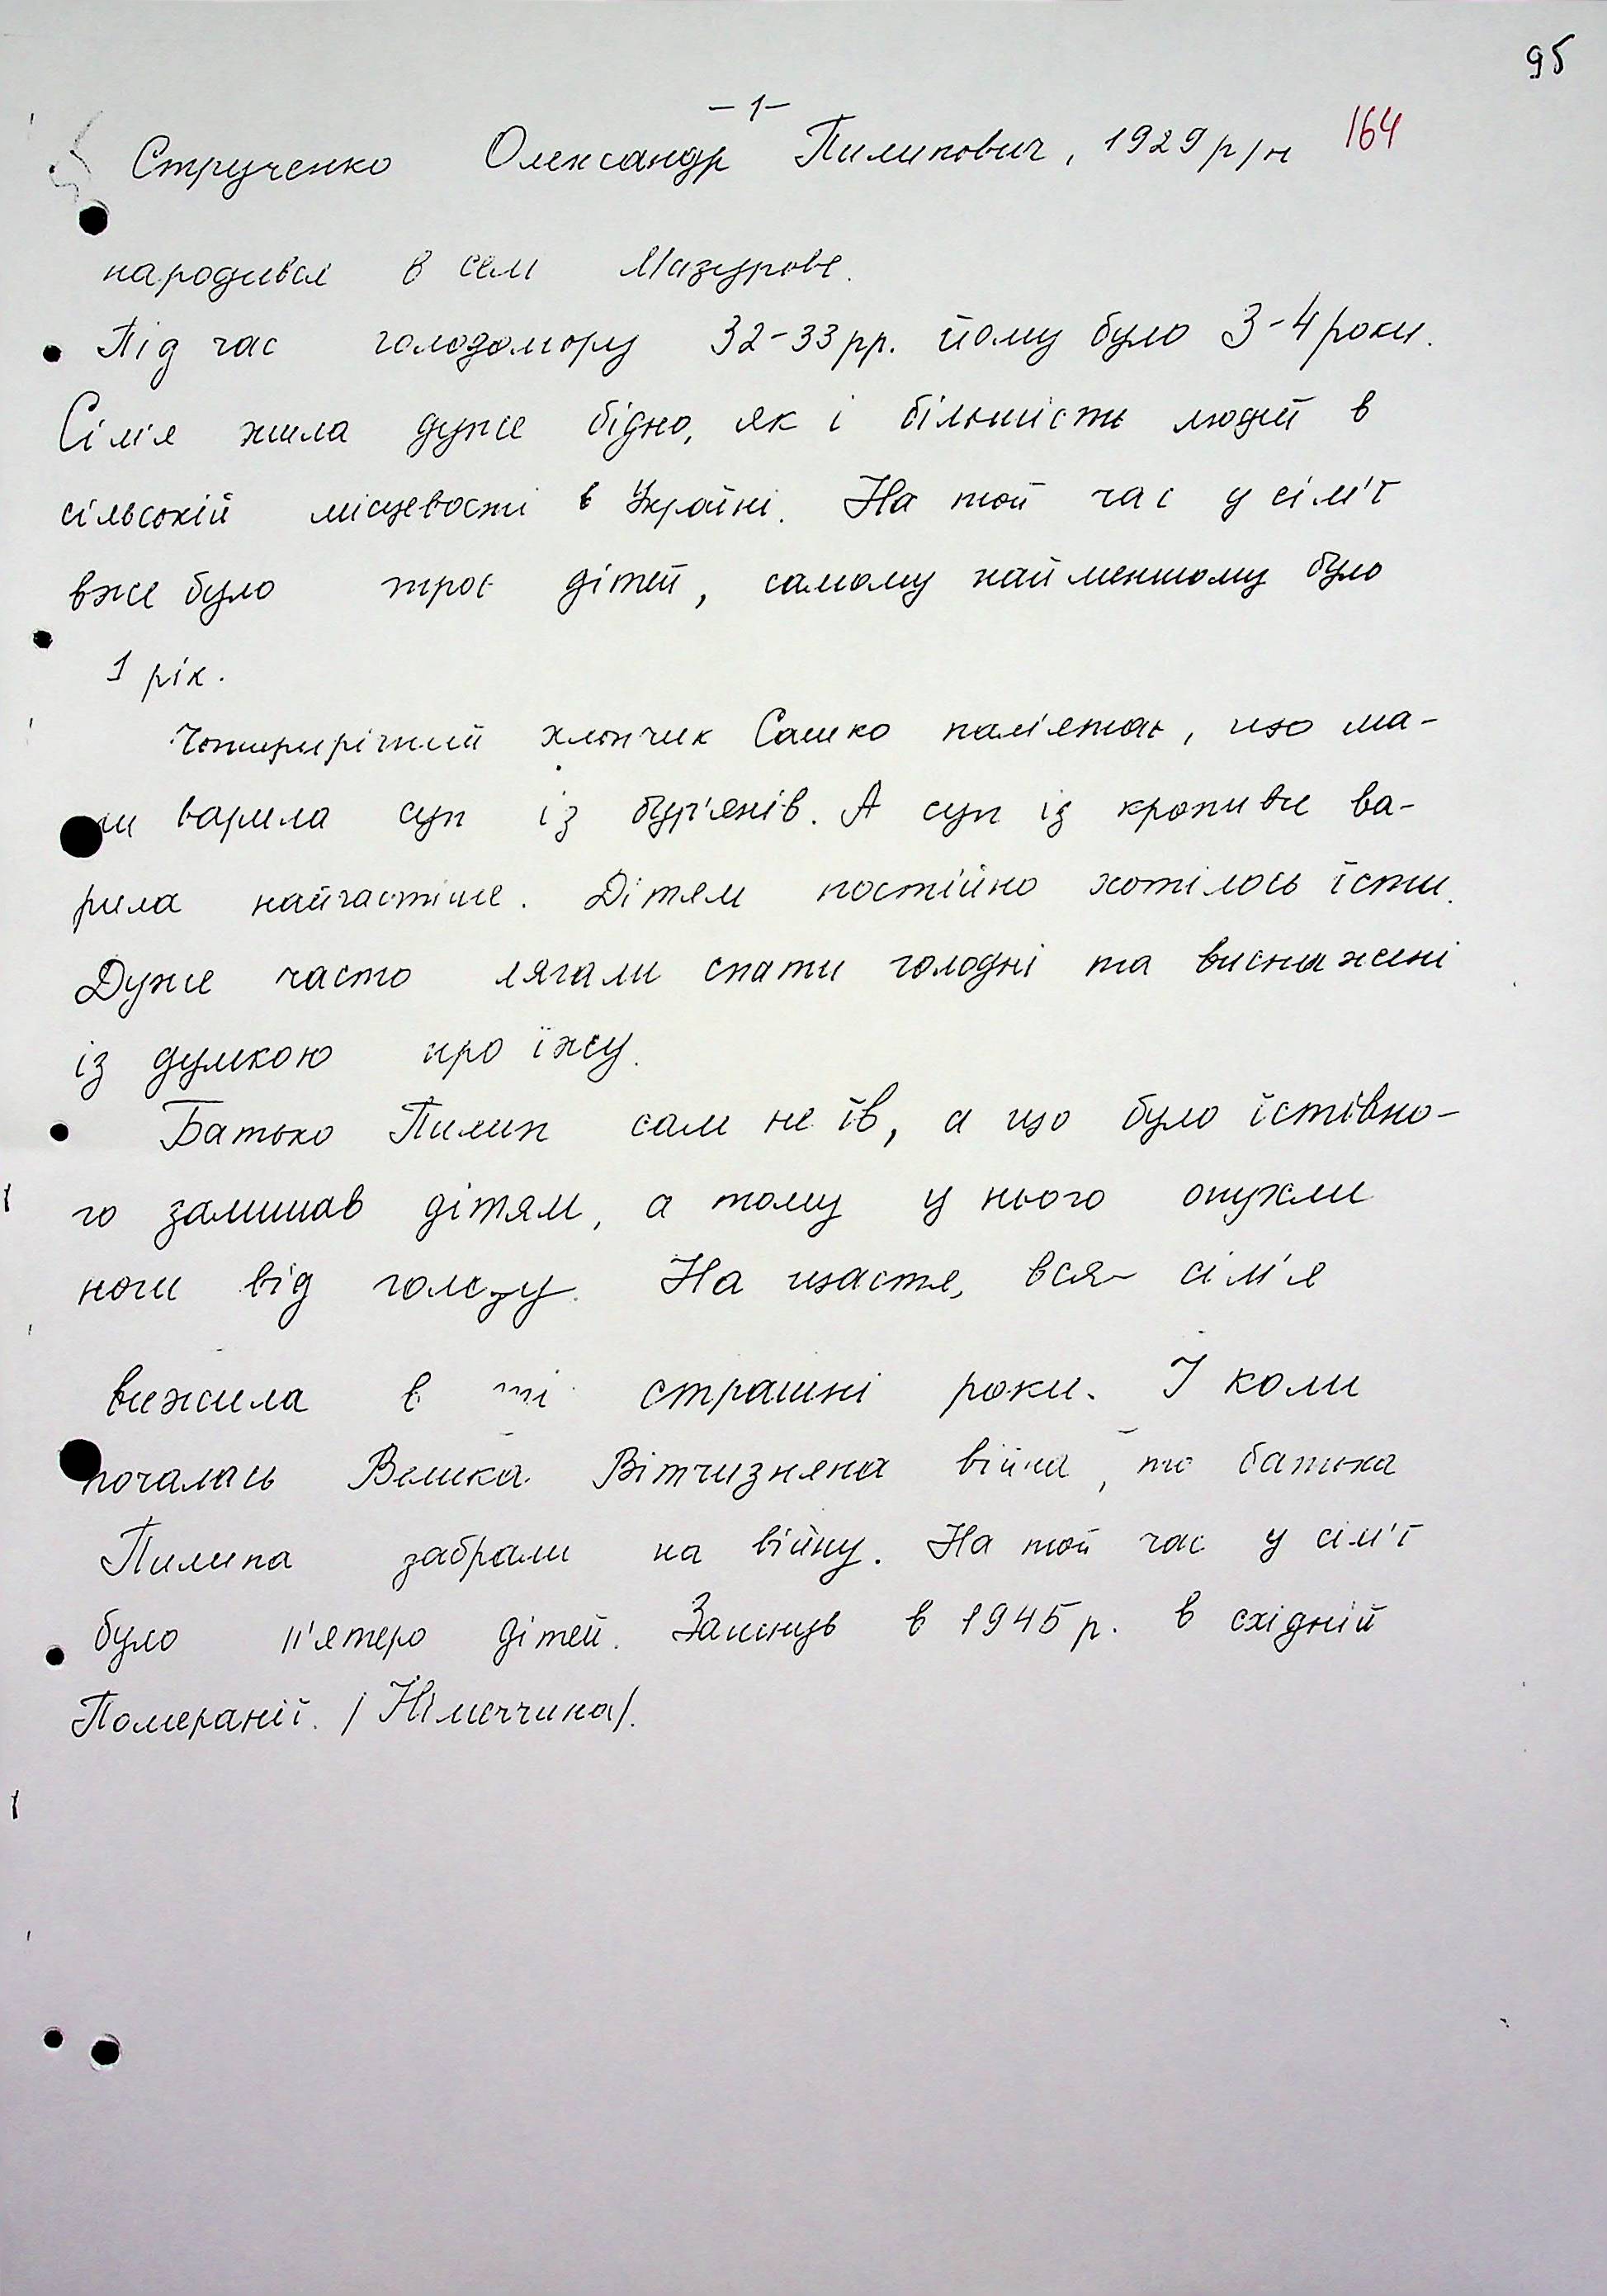 95
-1-
164
Струченко Олександр Пилипович, 1929 р/н
народився в селі Мазурове.
Під час голодомору 32-33 рр. йому було 3-4 роки.
Сім'я жила дуже бідно, як і більшість людей в
сільській місцевості в Україні. На той час у сім'ї
вже було троє дітей, самому найменшому було
1 рік.
Чотирирічний хлопчик Сашко пам'ятає, що ма-
ти варила суп із бур'янів. А суп із кропиви ва-
рила найчастіше. Дітям постійно хотілось їсти.
Дуже часто лягали спати голодні та виснажені
із думкою про їжу.
Батько Пилип сам не їв, а що було їстівно-
го залишав дітям, а тому у нього опухли
ноги від голоду. На щастя, вся сім'я
вижила в ті страшні роки. І коли
почалась Велика Вітчизняна війна, то батька
Пилипа забрали на війну. На той час у сім'ї
було п'ятеро дітей. Загинув в 1945 р. в східній
Померанії. /Німеччина/.